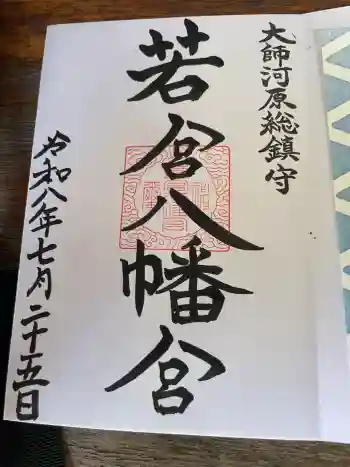 大師河原総鎮守
若宮八幡宮
令和八年七月二十五日